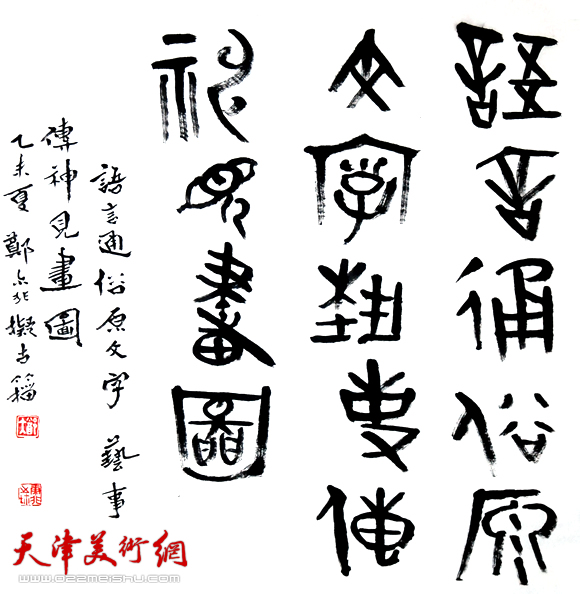 語言通俗原
文字藝事傳
神見畫圖
語言通俗原文字 藝事
傳神見畫圖
乙未夏 鄭少非擬古籀
天津美術網
www.022meishu.com